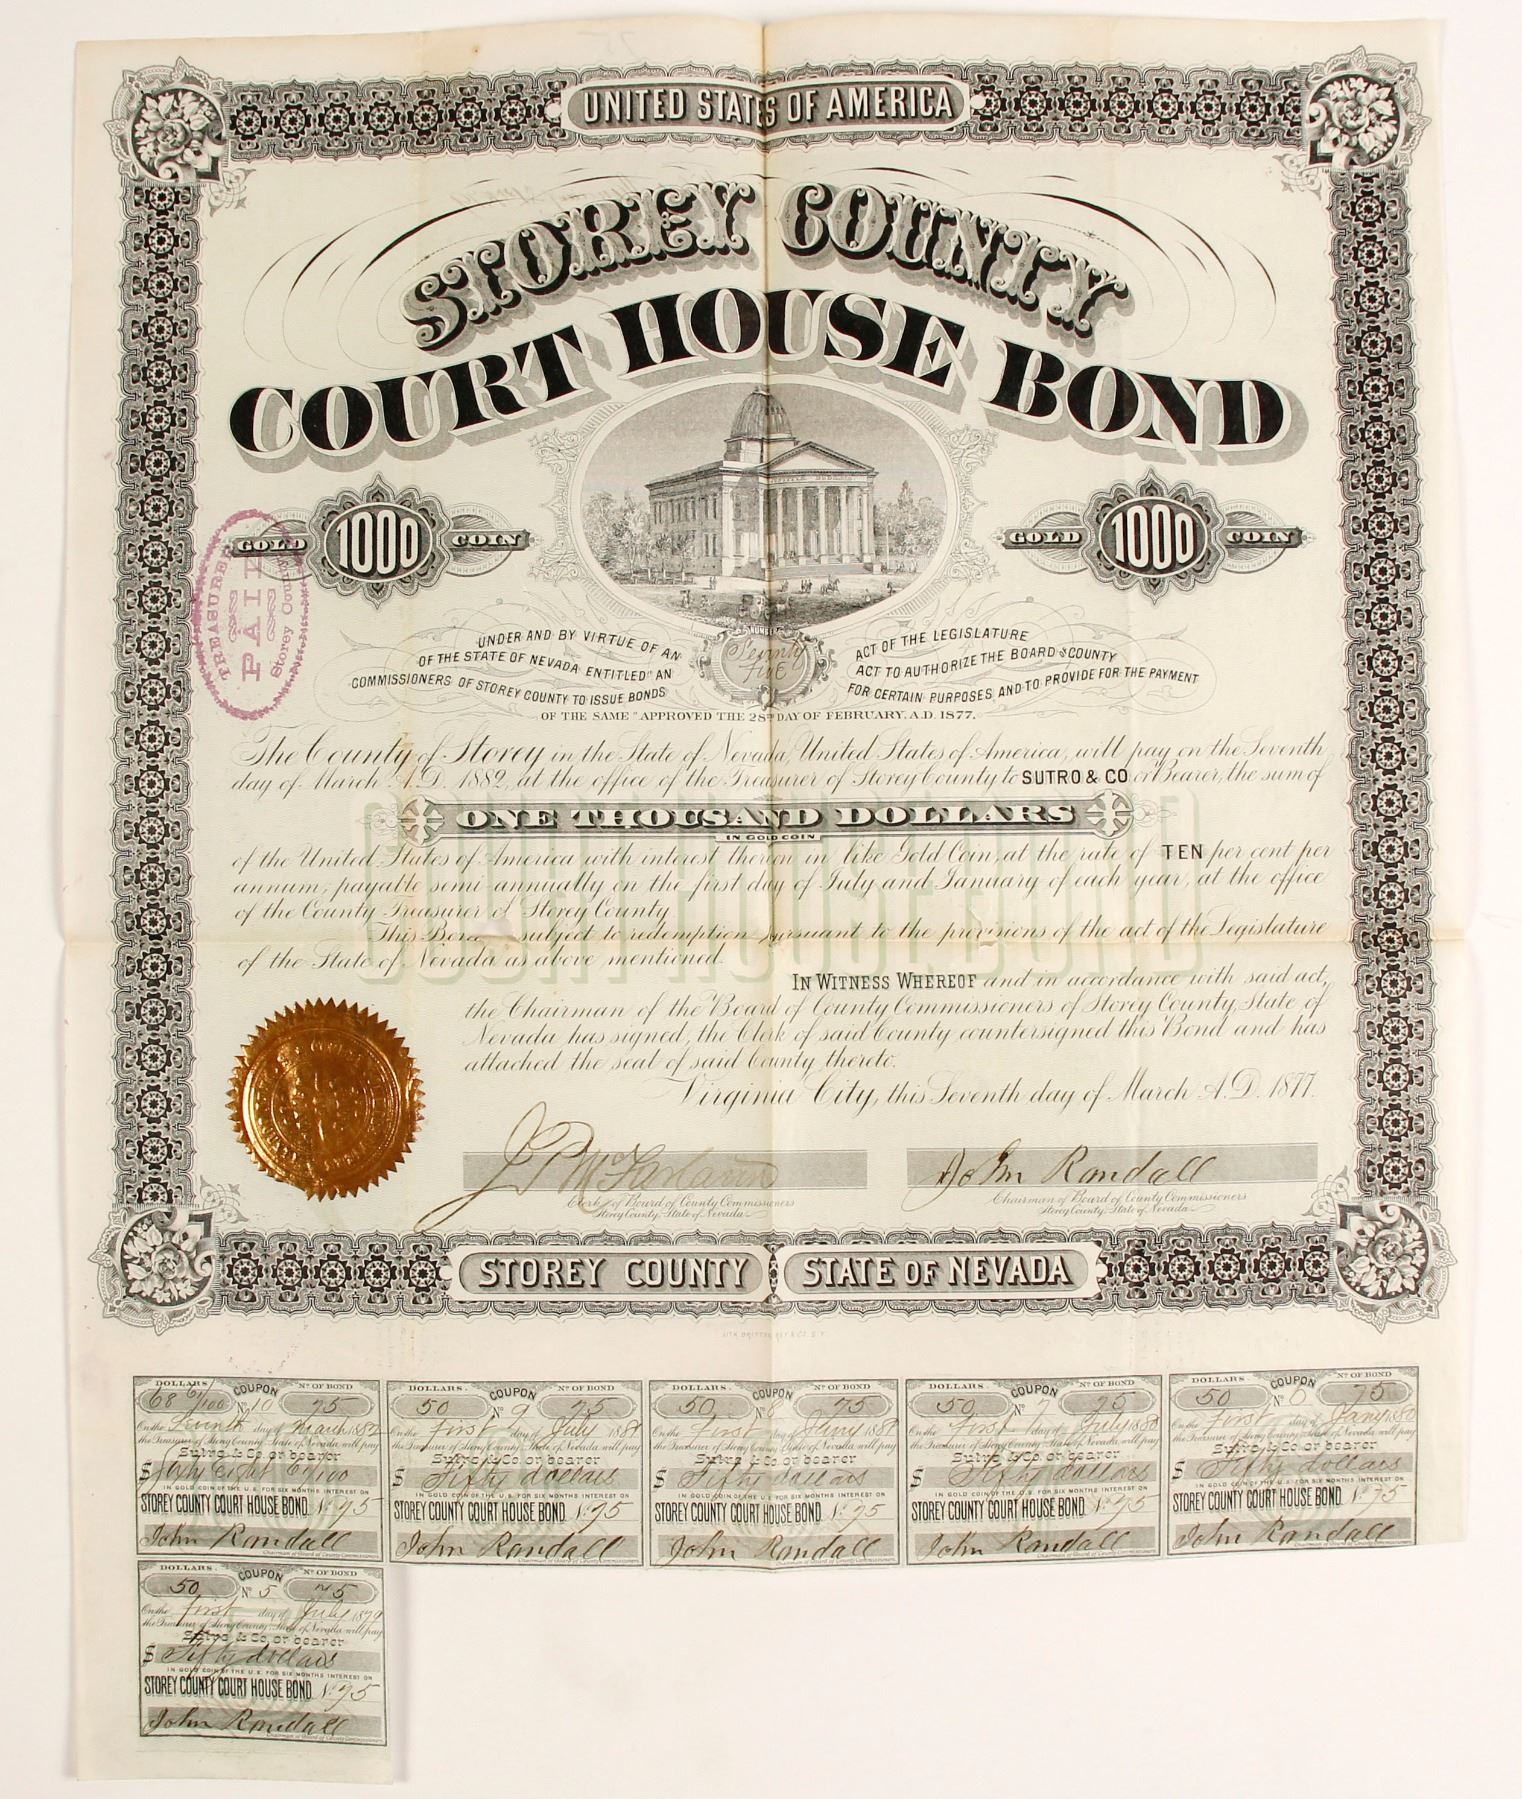 UNITED STATES OF AMERICA
STOREY COUNTY
COURT HOUSE BOND
GOLD 1000 COIN
GOLD 1000 COIN
TREASURER
PAID
Storey County
UNDER AND BY VIRTUE OF AN ACT OF THE LEGISLATURE
OF THE STATE OF NEVADA ENTITLED "AN ACT TO AUTHORIZE THE BOARD OF COUNTY
COMMISSIONERS OF STOREY COUNTY TO ISSUE BONDS FOR CERTAIN PURPOSES, AND TO PROVIDE FOR THE PAYMENT
OF THE SAME" APPROVED THE 28TH DAY OF FEBRUARY, A.D. 1877.
NUMBER
Seventy
five
The County of Storey in the State of Nevada, United States of America, will pay on the Seventh
day of March A.D. 1882, at the office of the Treasurer of Storey County to SUTRO & CO or Bearer, the sum of
ONE THOUSAND DOLLARS
IN GOLD COIN
of the United States of America with interest thereon in like Gold Coin, at the rate of TEN per cent per
annum, payable semi-annually on the first day of July and January of each year, at the office
of the County Treasurer of Storey County.
This Bond subject to redemption pursuant to the provisions of the act of the Legislature
of the State of Nevada as above mentioned.
IN WITNESS WHEREOF and in accordance with said act,
the Chairman of the Board of County Commissioners of Storey County, State of
Nevada has signed, the Clerk of said County countersigned this Bond and has
attached the seal of said County thereto.
Virginia City, this Seventh day of March A.D. 1877.
John Randall
Clerk of Board of County Commissioners
Storey County, State of Nevada
Chairman of Board of County Commissioners
Storey County, State of Nevada
STOREY COUNTY STATE OF NEVADA
DOLLARS. COUPON Nº OF BOND
68 61/100 Nº 10 75
On the Seventh day of March 1882
the Treasurer of Storey County, State of Nevada will pay
Sutro & Co. or bearer
IN GOLD COIN OF THE U.S. FOR SIX MONTHS INTEREST ON
STOREY COUNTY COURT HOUSE BOND Nº 75
John Randall
Chairman of Board of County Commissioners
DOLLARS. COUPON Nº OF BOND
50 Nº 9 75
On the First day of July 1881
the Treasurer of Storey County, State of Nevada will pay
Sutro & Co. or bearer
$ Fifty dollars
IN GOLD COIN OF THE U.S. FOR SIX MONTHS INTEREST ON
STOREY COUNTY COURT HOUSE BOND Nº 75
John Randall
Chairman of Board of County Commissioners
DOLLARS. COUPON Nº OF BOND
50 Nº 8 75
On the First day of Jany 1881
the Treasurer of Storey County, State of Nevada will pay
Sutro & Co. or bearer
$ Fifty dollars
IN GOLD COIN OF THE U.S. FOR SIX MONTHS INTEREST ON
STOREY COUNTY COURT HOUSE BOND Nº 75
John Randall
Chairman of Board of County Commissioners
DOLLARS. COUPON Nº OF BOND
50 Nº 7 75
On the First day of July 1880
the Treasurer of Storey County, State of Nevada will pay
Sutro & Co. or bearer
$ Fifty dollars
IN GOLD COIN OF THE U.S. FOR SIX MONTHS INTEREST ON
STOREY COUNTY COURT HOUSE BOND Nº 75
John Randall
Chairman of Board of County Commissioners
DOLLARS. COUPON Nº OF BOND
50 Nº 6 75
On the First day of Jany 1880
the Treasurer of Storey County, State of Nevada will pay
Sutro & Co. or bearer
$ Fifty dollars
IN GOLD COIN OF THE U.S. FOR SIX MONTHS INTEREST ON
STOREY COUNTY COURT HOUSE BOND Nº 75
John Randall
Chairman of Board of County Commissioners
DOLLARS. COUPON Nº OF BOND
50 Nº 5 75
On the first day of July 1879
the Treasurer of Storey County, State of Nevada will pay
Sutro & Co. or bearer
$ Fifty dollars
IN GOLD COIN OF THE U.S. FOR SIX MONTHS INTEREST ON
STOREY COUNTY COURT HOUSE BOND Nº 75
John Randall
Chairman of Board of County Commissioners